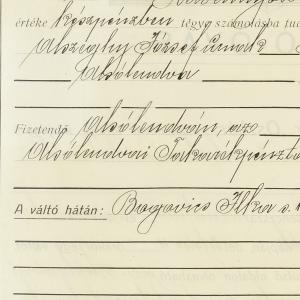 értéke készpénzben tegye számolásba
Alszeghy József úrnak
Alsólendva
Fizetendő Alsólendván, az
Alsólendvai Takarékpénztá
A váltó hátán: Bagovics Ilka s. k.